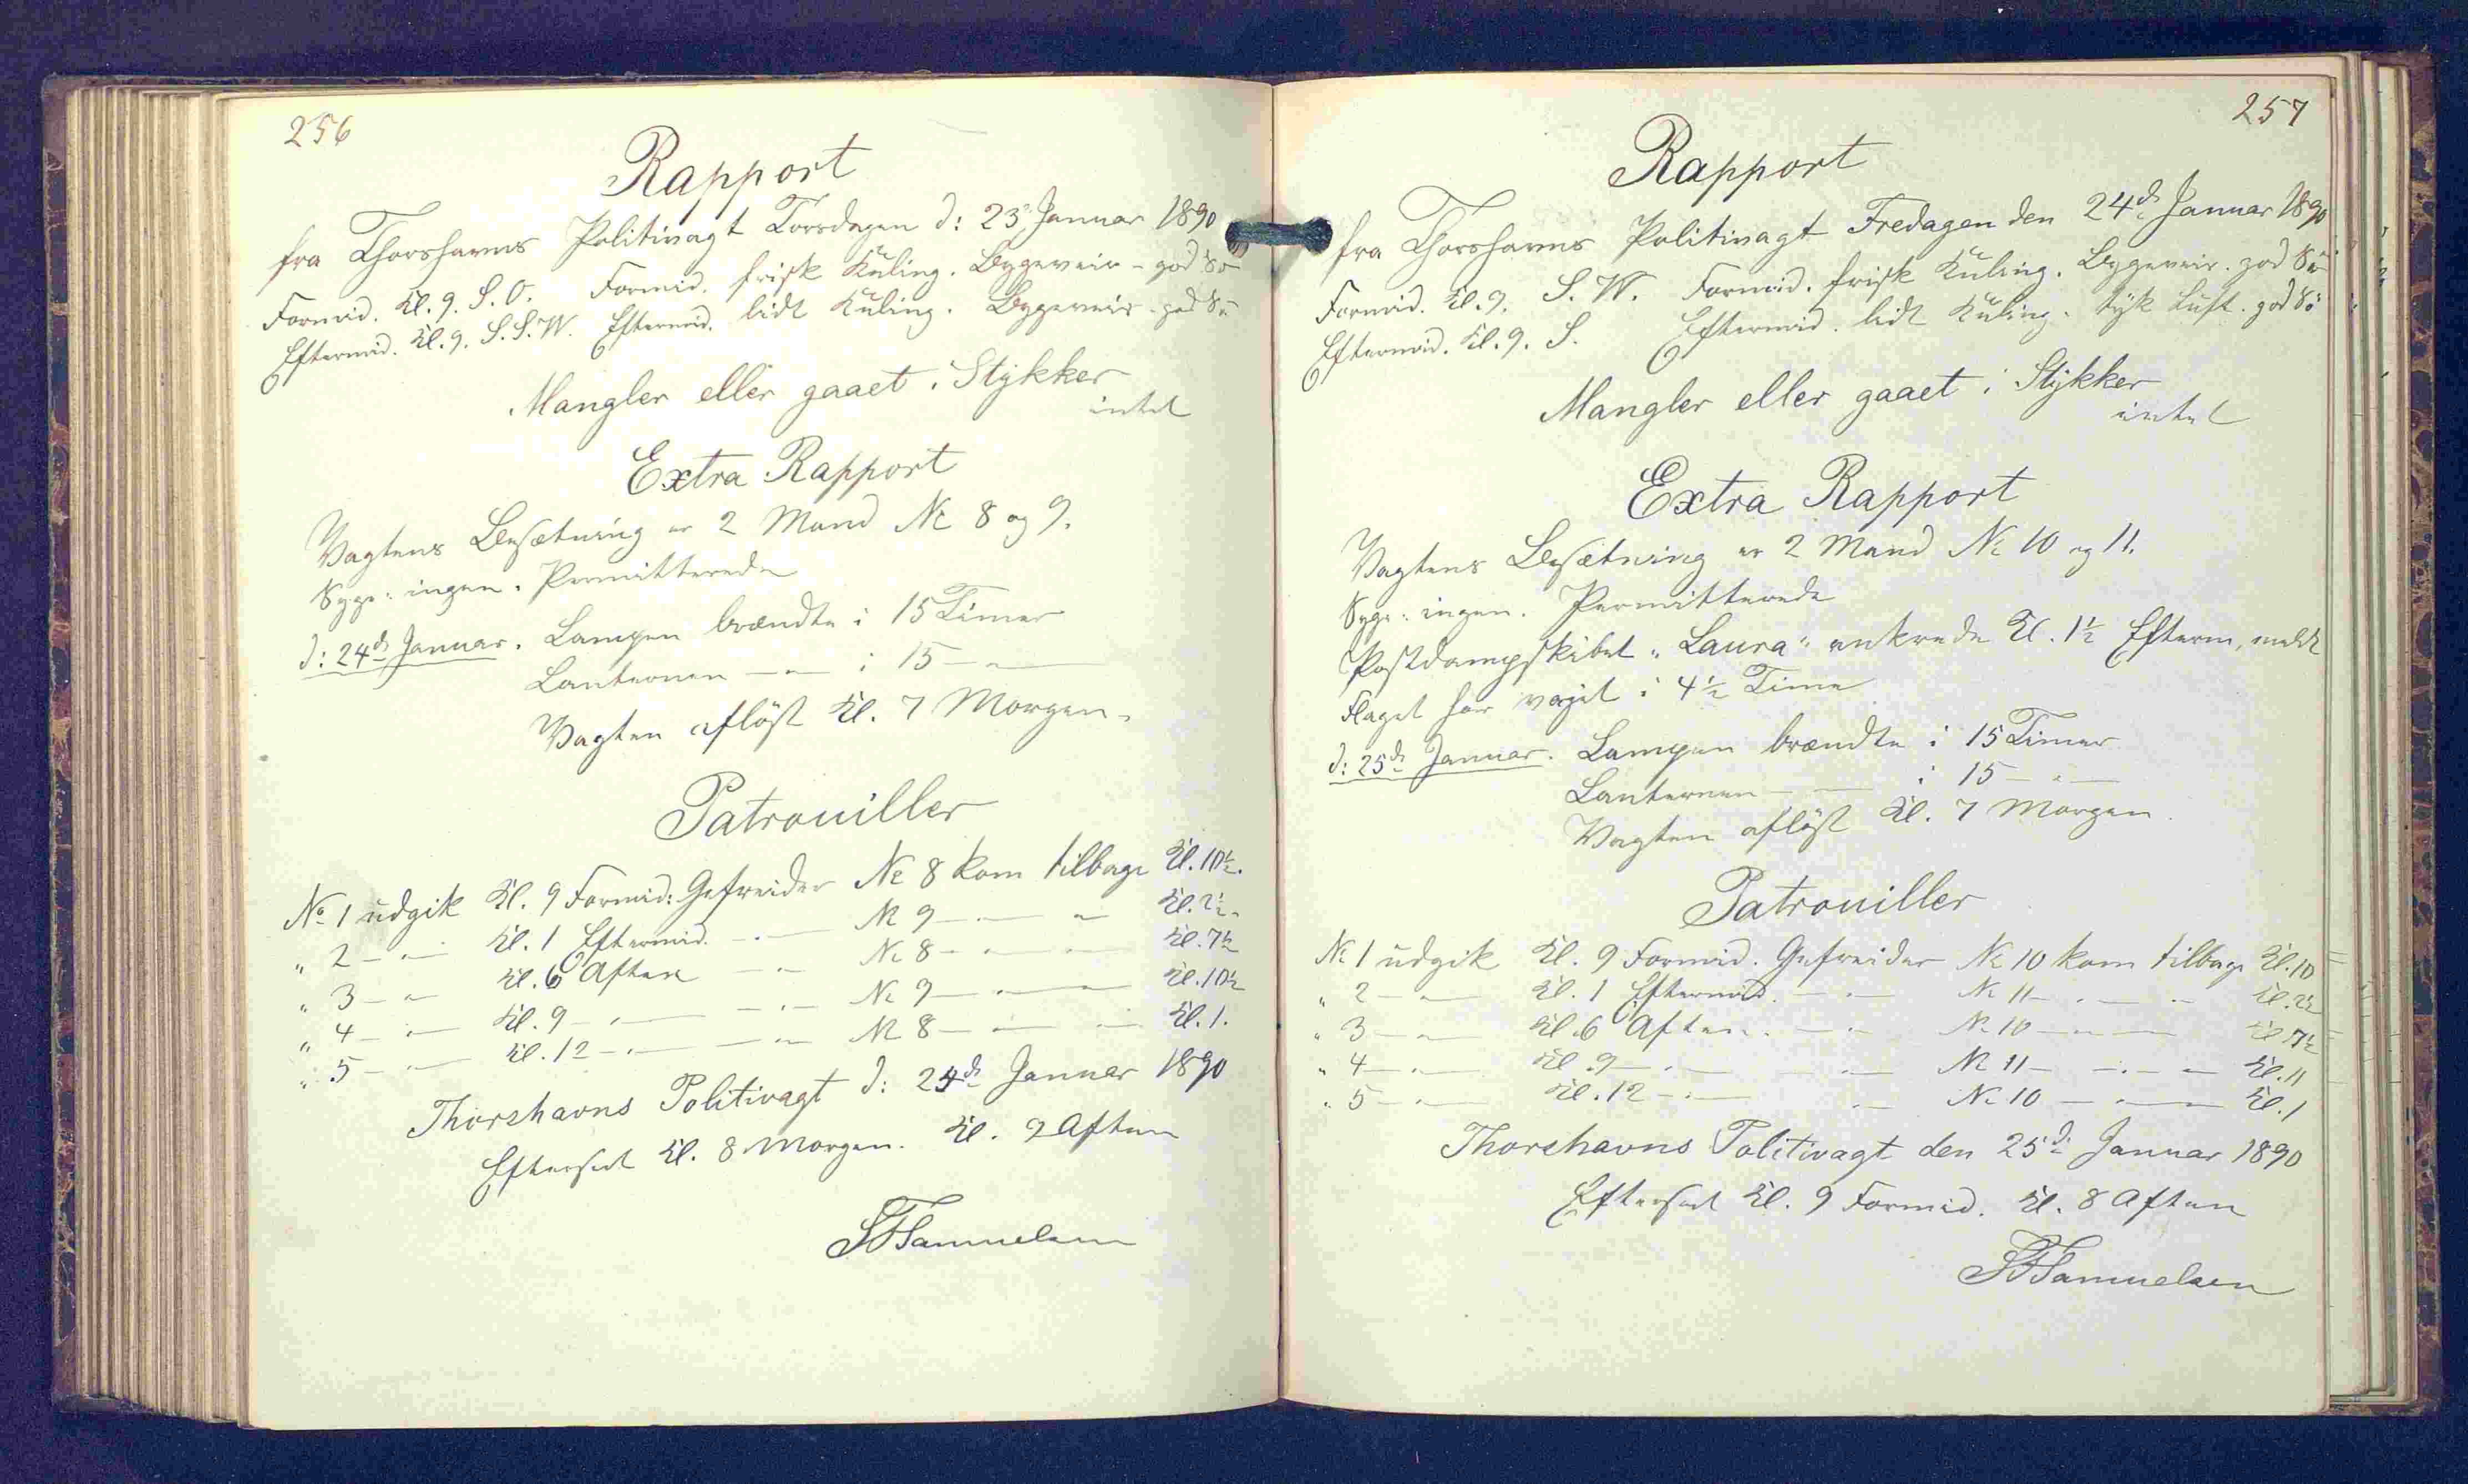 256
Rapport
fra Thorshavns Politivagt Torsdagen d: 23' Januar 1890
Formid. Kl. 9. S. O. Formid. frisk Kuling. Bygeveir - god Sö
Eftermid. Kl. 9. S. S. W. Eftermid. lidt Kuling. Bygeveir - god Sö
Mangler eller gaaet i Stykker
intet
Extra Rapport
Vagtens Besætning er 2 Mand No 8 og 9.
Syge: ingen. Permitterede
d: 24de Januar. Lampen brændte i 15 Timer
Lanternen — " — i 15 — " —
Vagten aflöst Kl. 7 Morgen.
Patrouiller
No 1 udgik Kl. 9 Formid: Gefreider No 8 kom tilbage Kl. 10½.
" 2 — " — Kl. 1 Eftermid. — " — No 9 — " — " — Kl. 2½.
" 3 — " — Kl. 6 Aften — " — No 8 — " — " — Kl. 7½
" 4 — " — Kl. 9 — " — — " — No 9 — " — " — Kl. 10½
" 5 — " — Kl. 12 — " — — " — No 8 — " — " — Kl. 1.
Thorshavns Politivagt d: 24de Januar 1890
Efterset Kl. 8 Morgen. Kl. 9 Aften
Samuelsen
257
Rapport
fra Thorshavns Politivagt Fredagen den 24de Januar 1890
Formid. Kl. 9. S. W. Formid. frisk Kuling. Bygeveir. god Sö
Eftermid. Kl. 9. S. Eftermid. lidt Kuling. tyk Luft. god Sö
Mangler eller gaaet i Stykker
intet
Extra Rapport
Vagtens Besætning er 2 Mand No 10 og 11.
Syge: ingen. Permitterede
Postdampskibet "Laura" ankrede Kl. 1½ Efterm, meldt
Flaget har vajet i 4½ Time
d: 25de Januar. Lampen brændte i 15 Timer
Lanternen — — i 15 — " —
Vagten aflöst Kl. 7 Morgen.
Patrouiller
No 1 udgik Kl. 9 Formid. Gefreider No 10 kom tilbage Kl. 10
" 2 — " — Kl. 1 Eftermid. — " — No 11 — " — " — Kl. 2½
" 3 — " — Kl. 6 Aften. — " — No 10 — " — Kl. 7½
" 4 — " — Kl. 9 — " — — " — No 11 — " — " — Kl. 11
" 5 — " — Kl. 12 — " — — " — No 10 — " — Kl. 1
Thorshavns Politivagt den 25de Januar 1890
Efterset Kl. 9 Formid. Kl. 8 Aften
Samuelsen